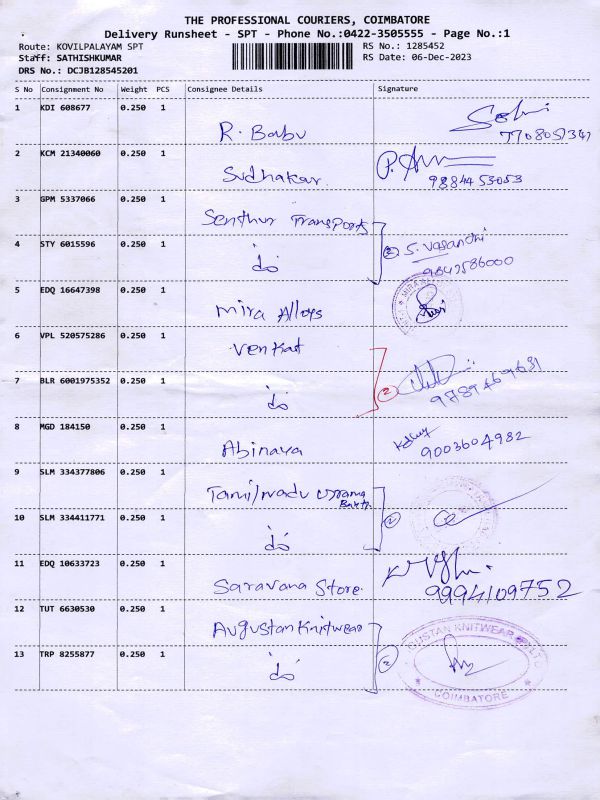 THE PROFESSIONAL COURIERS, COIMBATORE
Delivery Runsheet - SPT - Phone No.:0422-3505555 - Page No.:1
Route: KOVILPALAYAM SPT RS No.: 1285452
Staff: SATHISHKUMAR RS Date: 06-Dec-2023
DRS No.: DCJB128545201
S No Consignment No Weight PCS Consignee Details Signature
1 KDI 608677 0.250 1 R. Babu
7708051347
2 KCM 21340060 0.250 1 Sudhakar
9884453053
3 GPM 5337066 0.250 1 Senthur Transports
4 STY 6015596 0.250 1 do 2 S. Vasandhi
9842586000
5 EDQ 16647398 0.250 1 Mira Alloys
6 VPL 520575286 0.250 1 Venkat
7 BLR 6001975352 0.250 1 do 2
9789469631
8 MGD 184150 0.250 1 Abinaya
9003604982
9 SLM 334377806 0.250 1 Tamilnadu Grama
Bank
10 SLM 334411771 0.250 1 do 2
11 EDQ 10633723 0.250 1 Saravana Store
9994109752
12 TUT 6630530 0.250 1 Augustan Knitwear
13 TRP 8255877 0.250 1 do 2
GUSTAN KNITWEAR
COIMBATORE